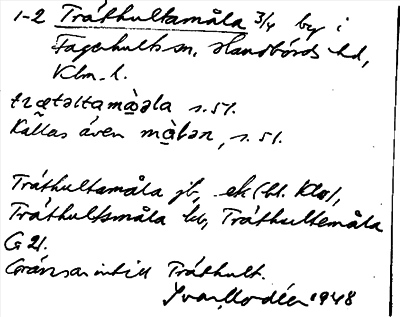 1-2 Tråthultamåla 3/4 by i
Fagerhults sn. Handbörds hd,
Klm. l.
trætəltamọ̀əla s. 51.
Kallas även mọ̀lən, s. 51.
Tråthultamåla jb, ek (bl. Kto),
Tråthultsmåla kb, Tråthultemåla
G 21.
Gränsar intill Tråthult.
Ivar Modéer 1948